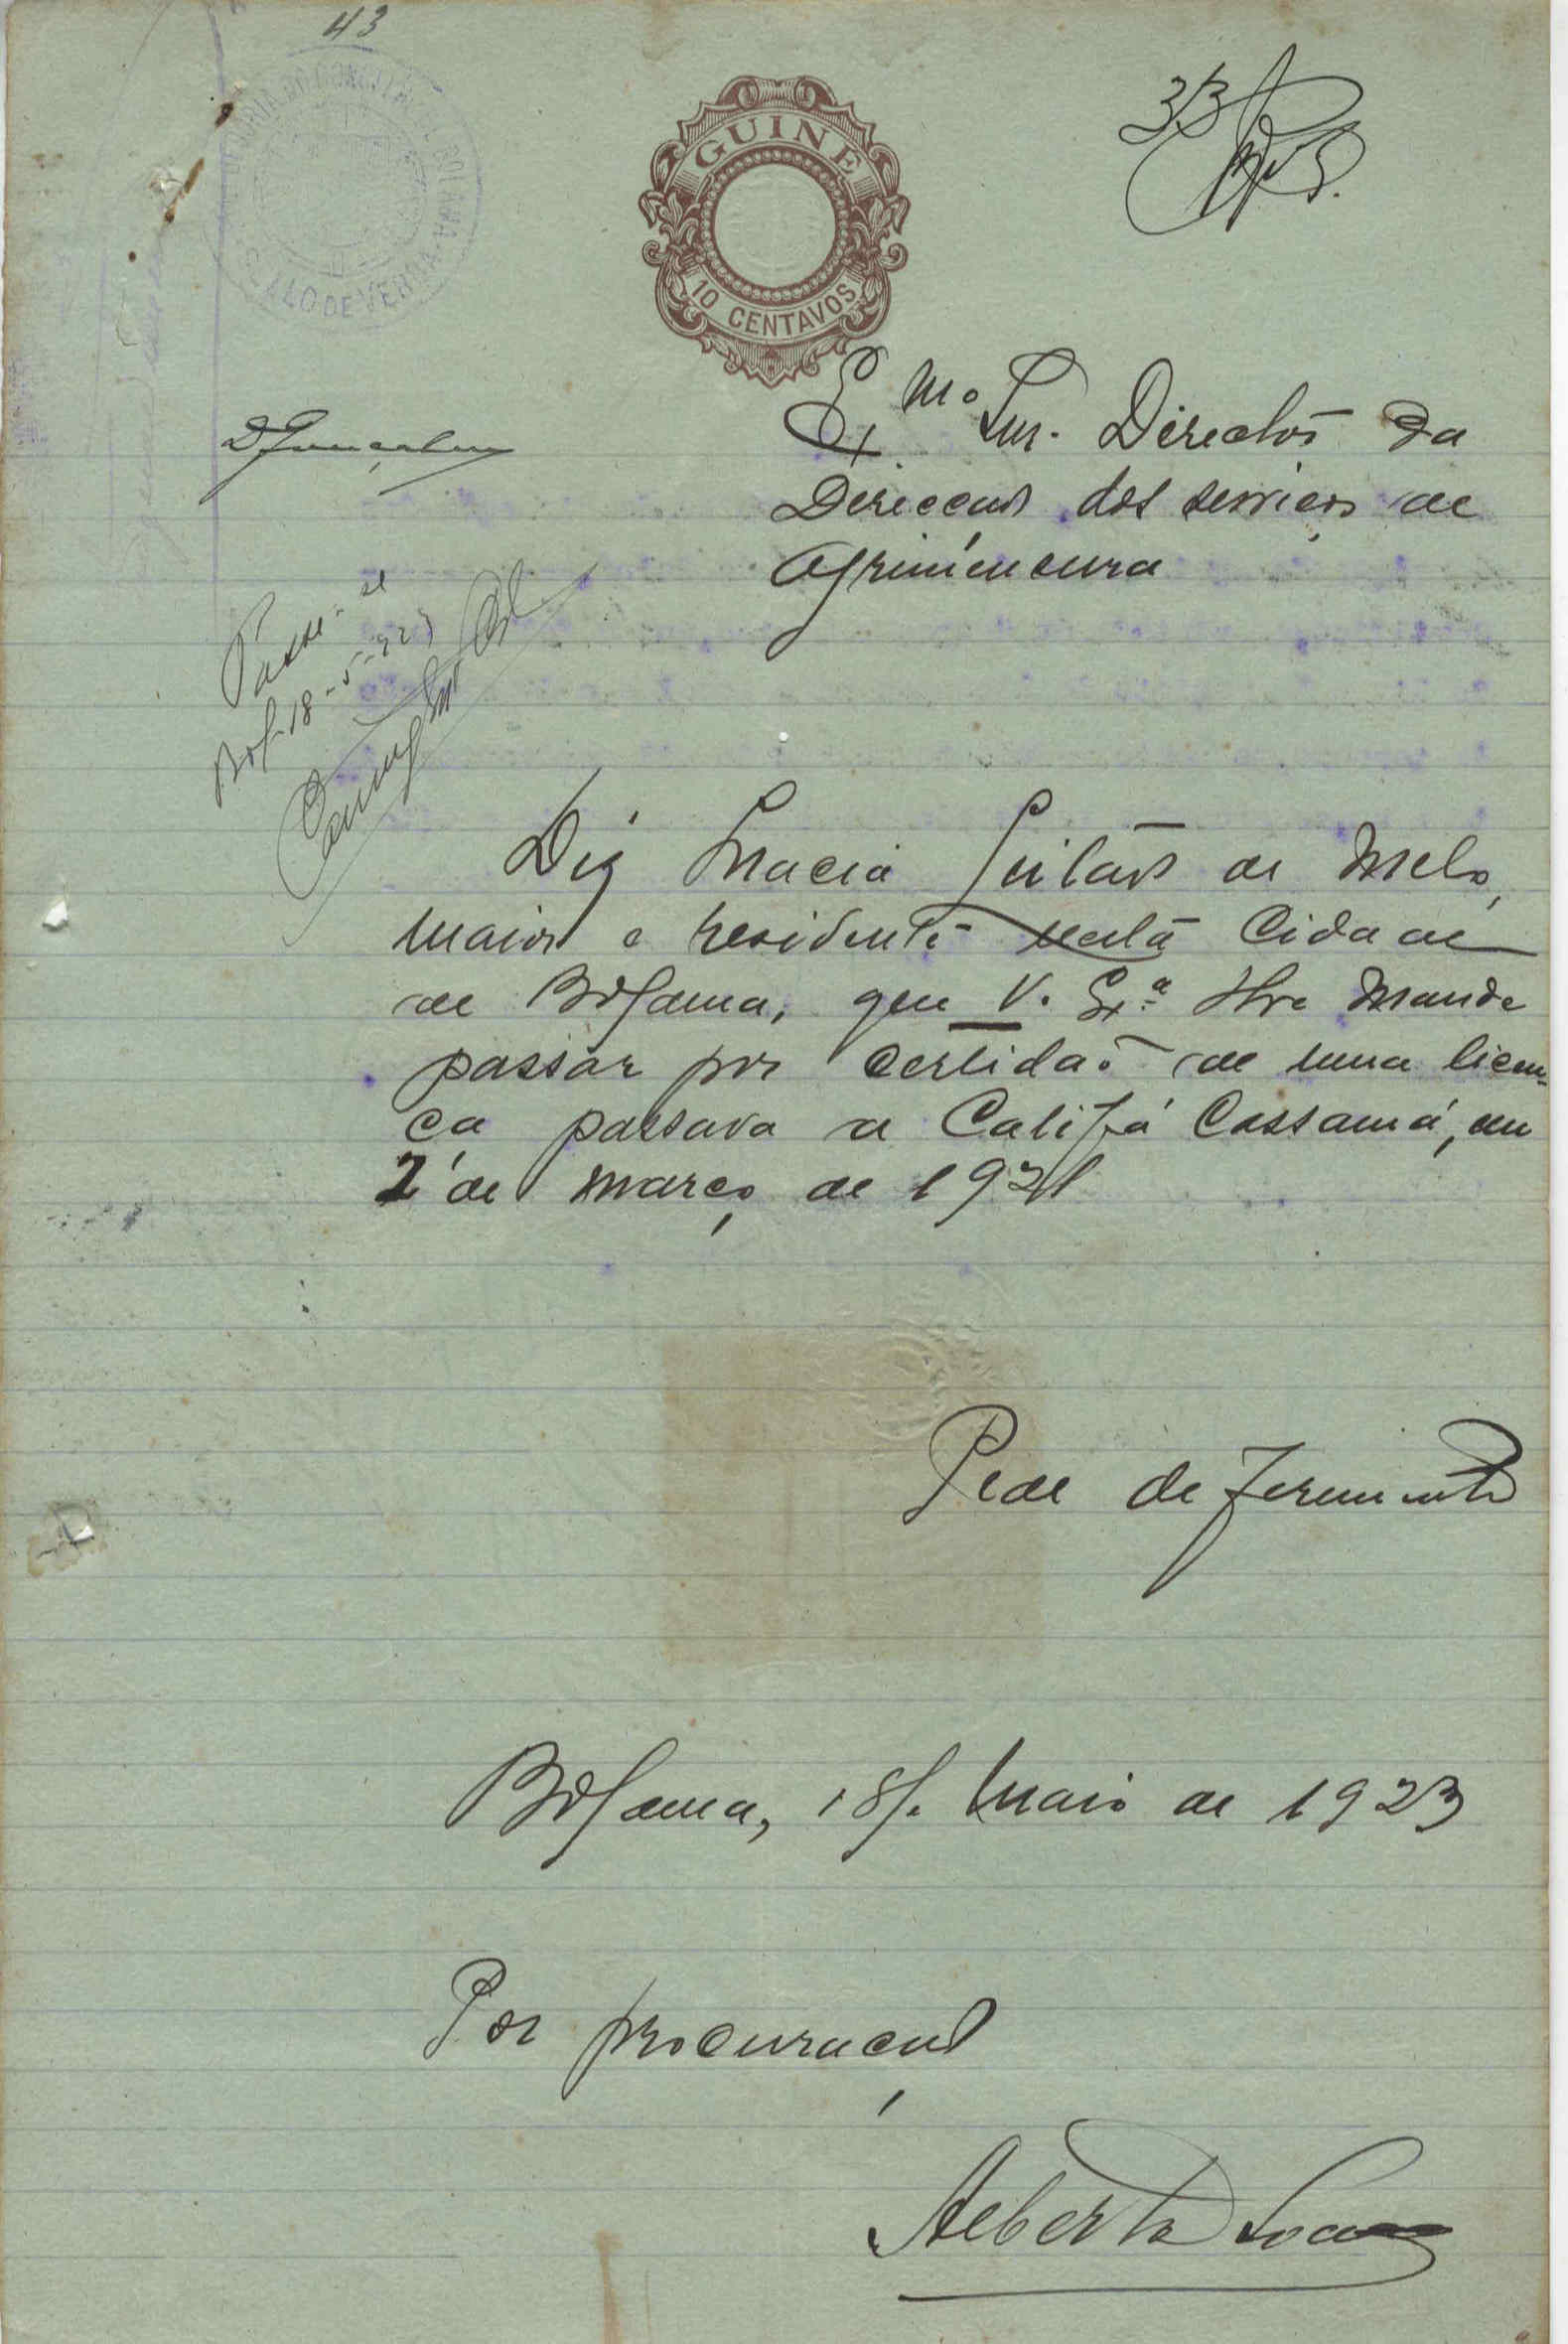 43
GUINÉ
10 CENTAVOS
33
Ex.mo Snr. Director da
Direcção dos serviços de
Agrimensura
Passe-se
Bol. 18-5-923
Diz Maria Leitão de Melo,
maior e residente nesta Cidade
de Bolama, que V. Ex.ª lhe mande
passar por certidão de uma licen-
ça passada a Califá Cassamá, em
2 de março de 1921
Pede deferimento
Bolama, 18/. Maio de 1923
Por procuração
Alberto Soares